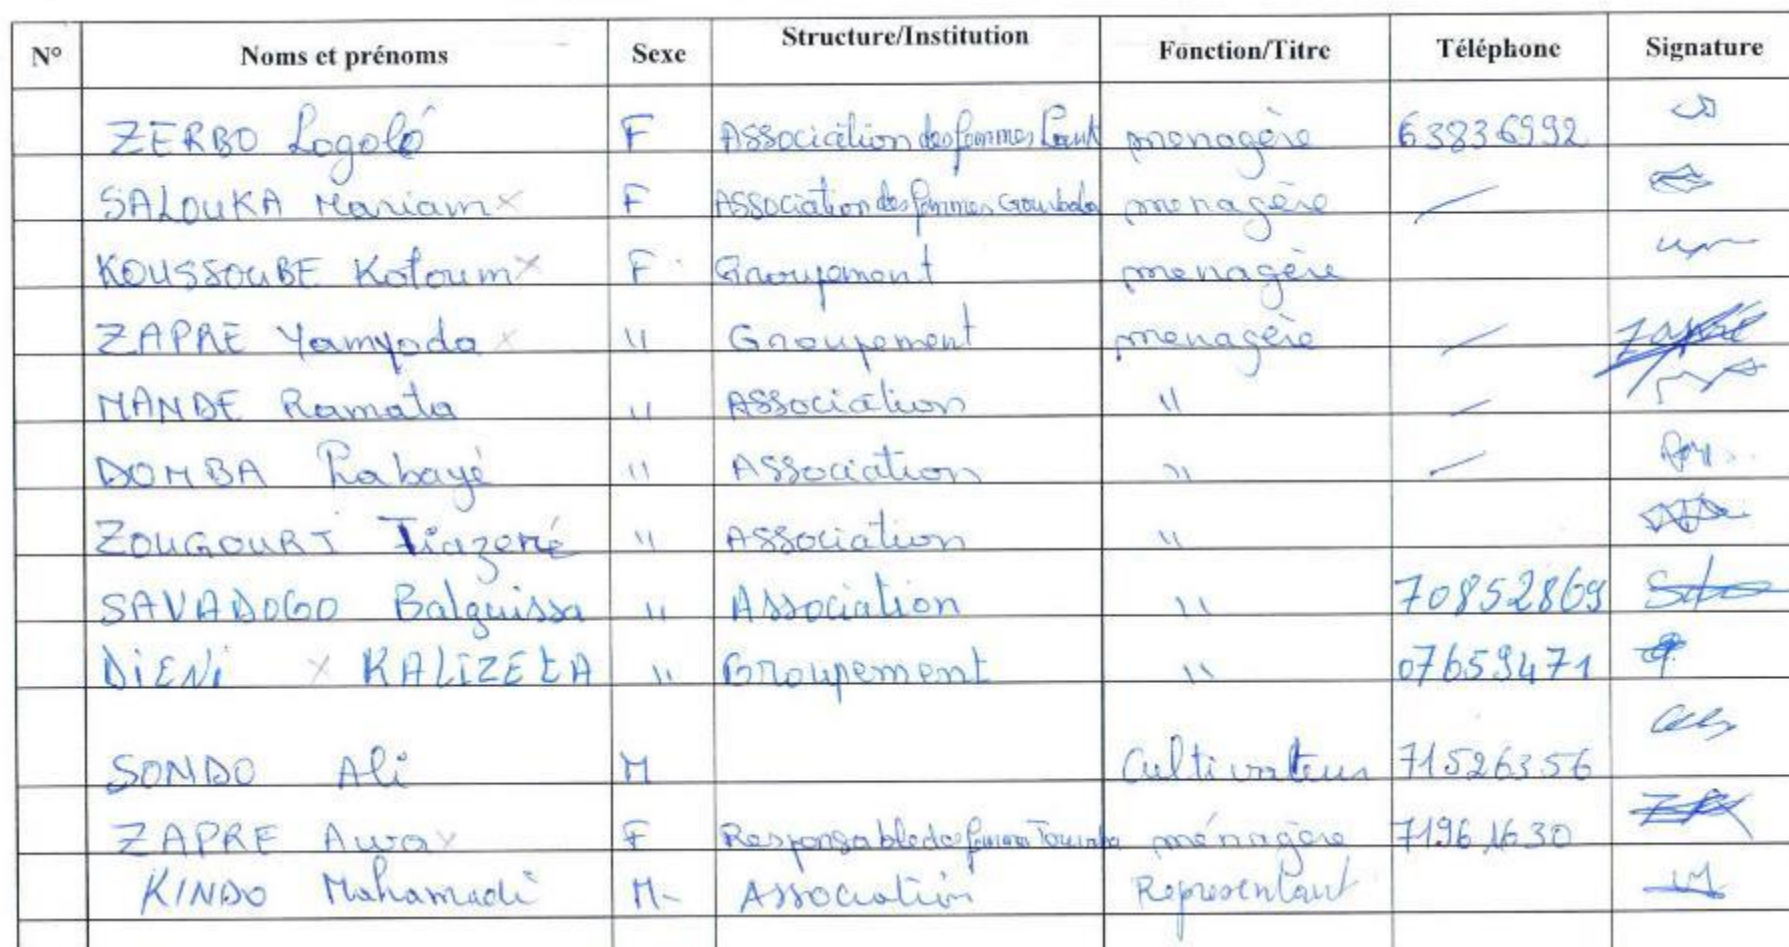 N° Noms et prénoms Sexe Structure/Institution Fonction/Titre Téléphone Signature
ZERBO Logolé F Association des femmes menagère 63836992
SALOUKA Mariam x F Association des femmes menagère /
KOUSSOUBE Kotoum x F Groupement menagère
ZAPRE Yamyoda x " Groupement menagère / Zapré
MANDE Ramata " Association " /
DOMBA Rabayé " Association " /
ZOUGOURI " Association "
SAVADOGO Balguissa " Association " 70852869
DIENI x KALIZETA " Groupement " 07659471
SONDO Ali M Cultivateur 71526356
ZAPRE Awa x F Responsable des femmes ménagère 71961630
KINDO Mahamadi M- Association Representant